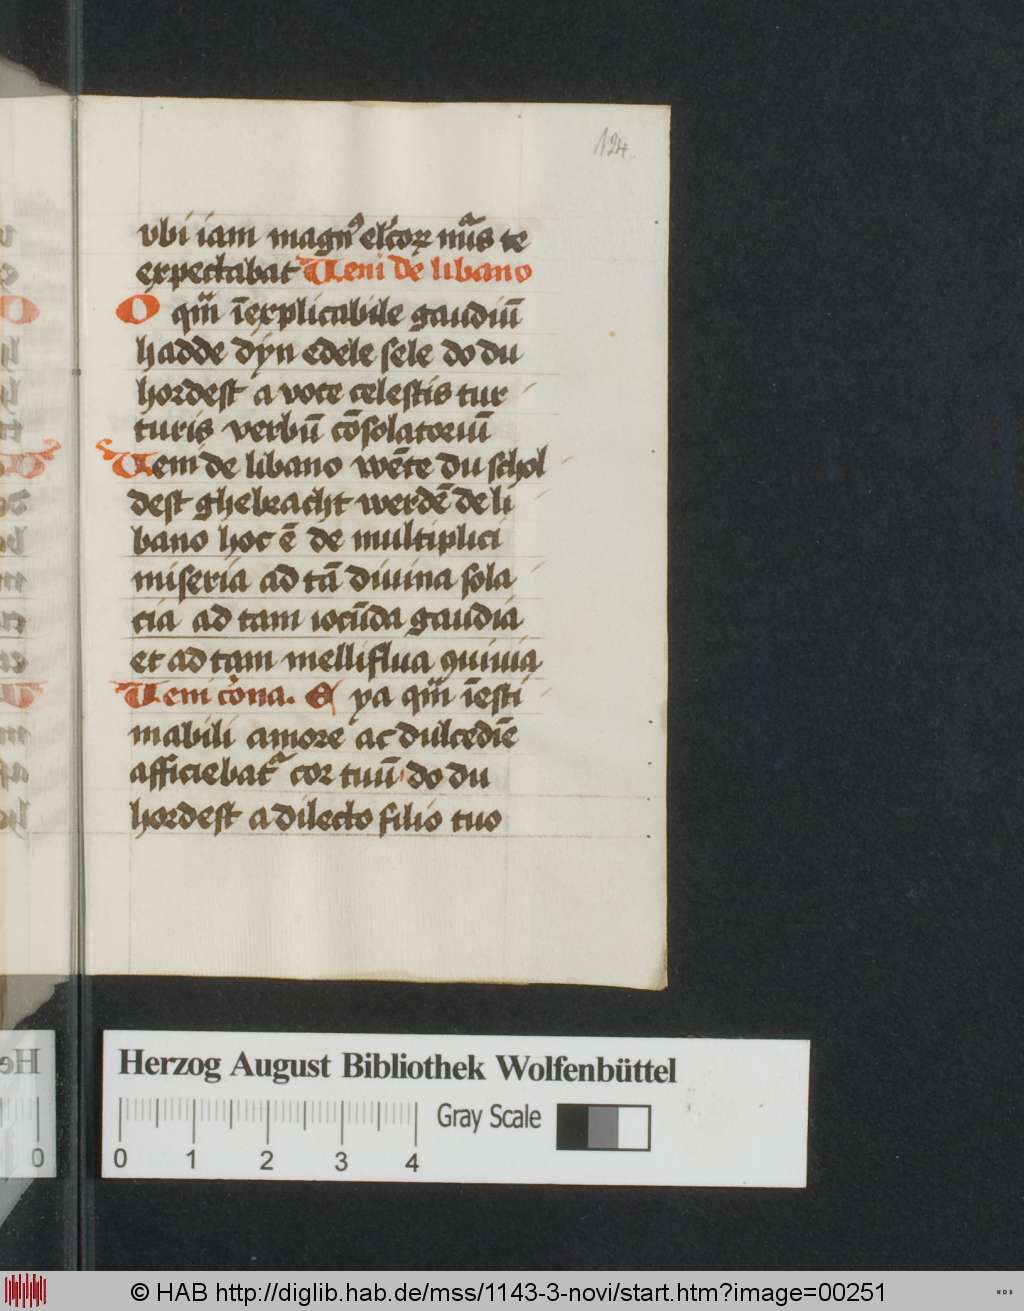 124
vbi iam magnꝰ el'coꝝ nũs te
expectabat Ueni de libano
O qm̃ īexplicabile gaudiū
hadde dyn edele sele do du
hordest a voce celestis tur
turis verbū cōsolatoriū
Ueni de libano wēte du schol
dest ghebracht werdē de li
bano hoc ē de multiplici
miseria ad tā diuina sola
cia ad tam iocūda gaudia
et ad tam melliflua ꝯuiuia
Ueni cōna. Eya qm̃ īesti
mabili amore ac dulcedīe
afficiebatᷣ cor tuū do du
hordest a dilecto filio tuo
Herzog August Bibliothek Wolfenbüttel
Gray Scale
0 1 2 3 4
© HAB http://diglib.hab.de/mss/1143-3-novi/start.htm?image=00251